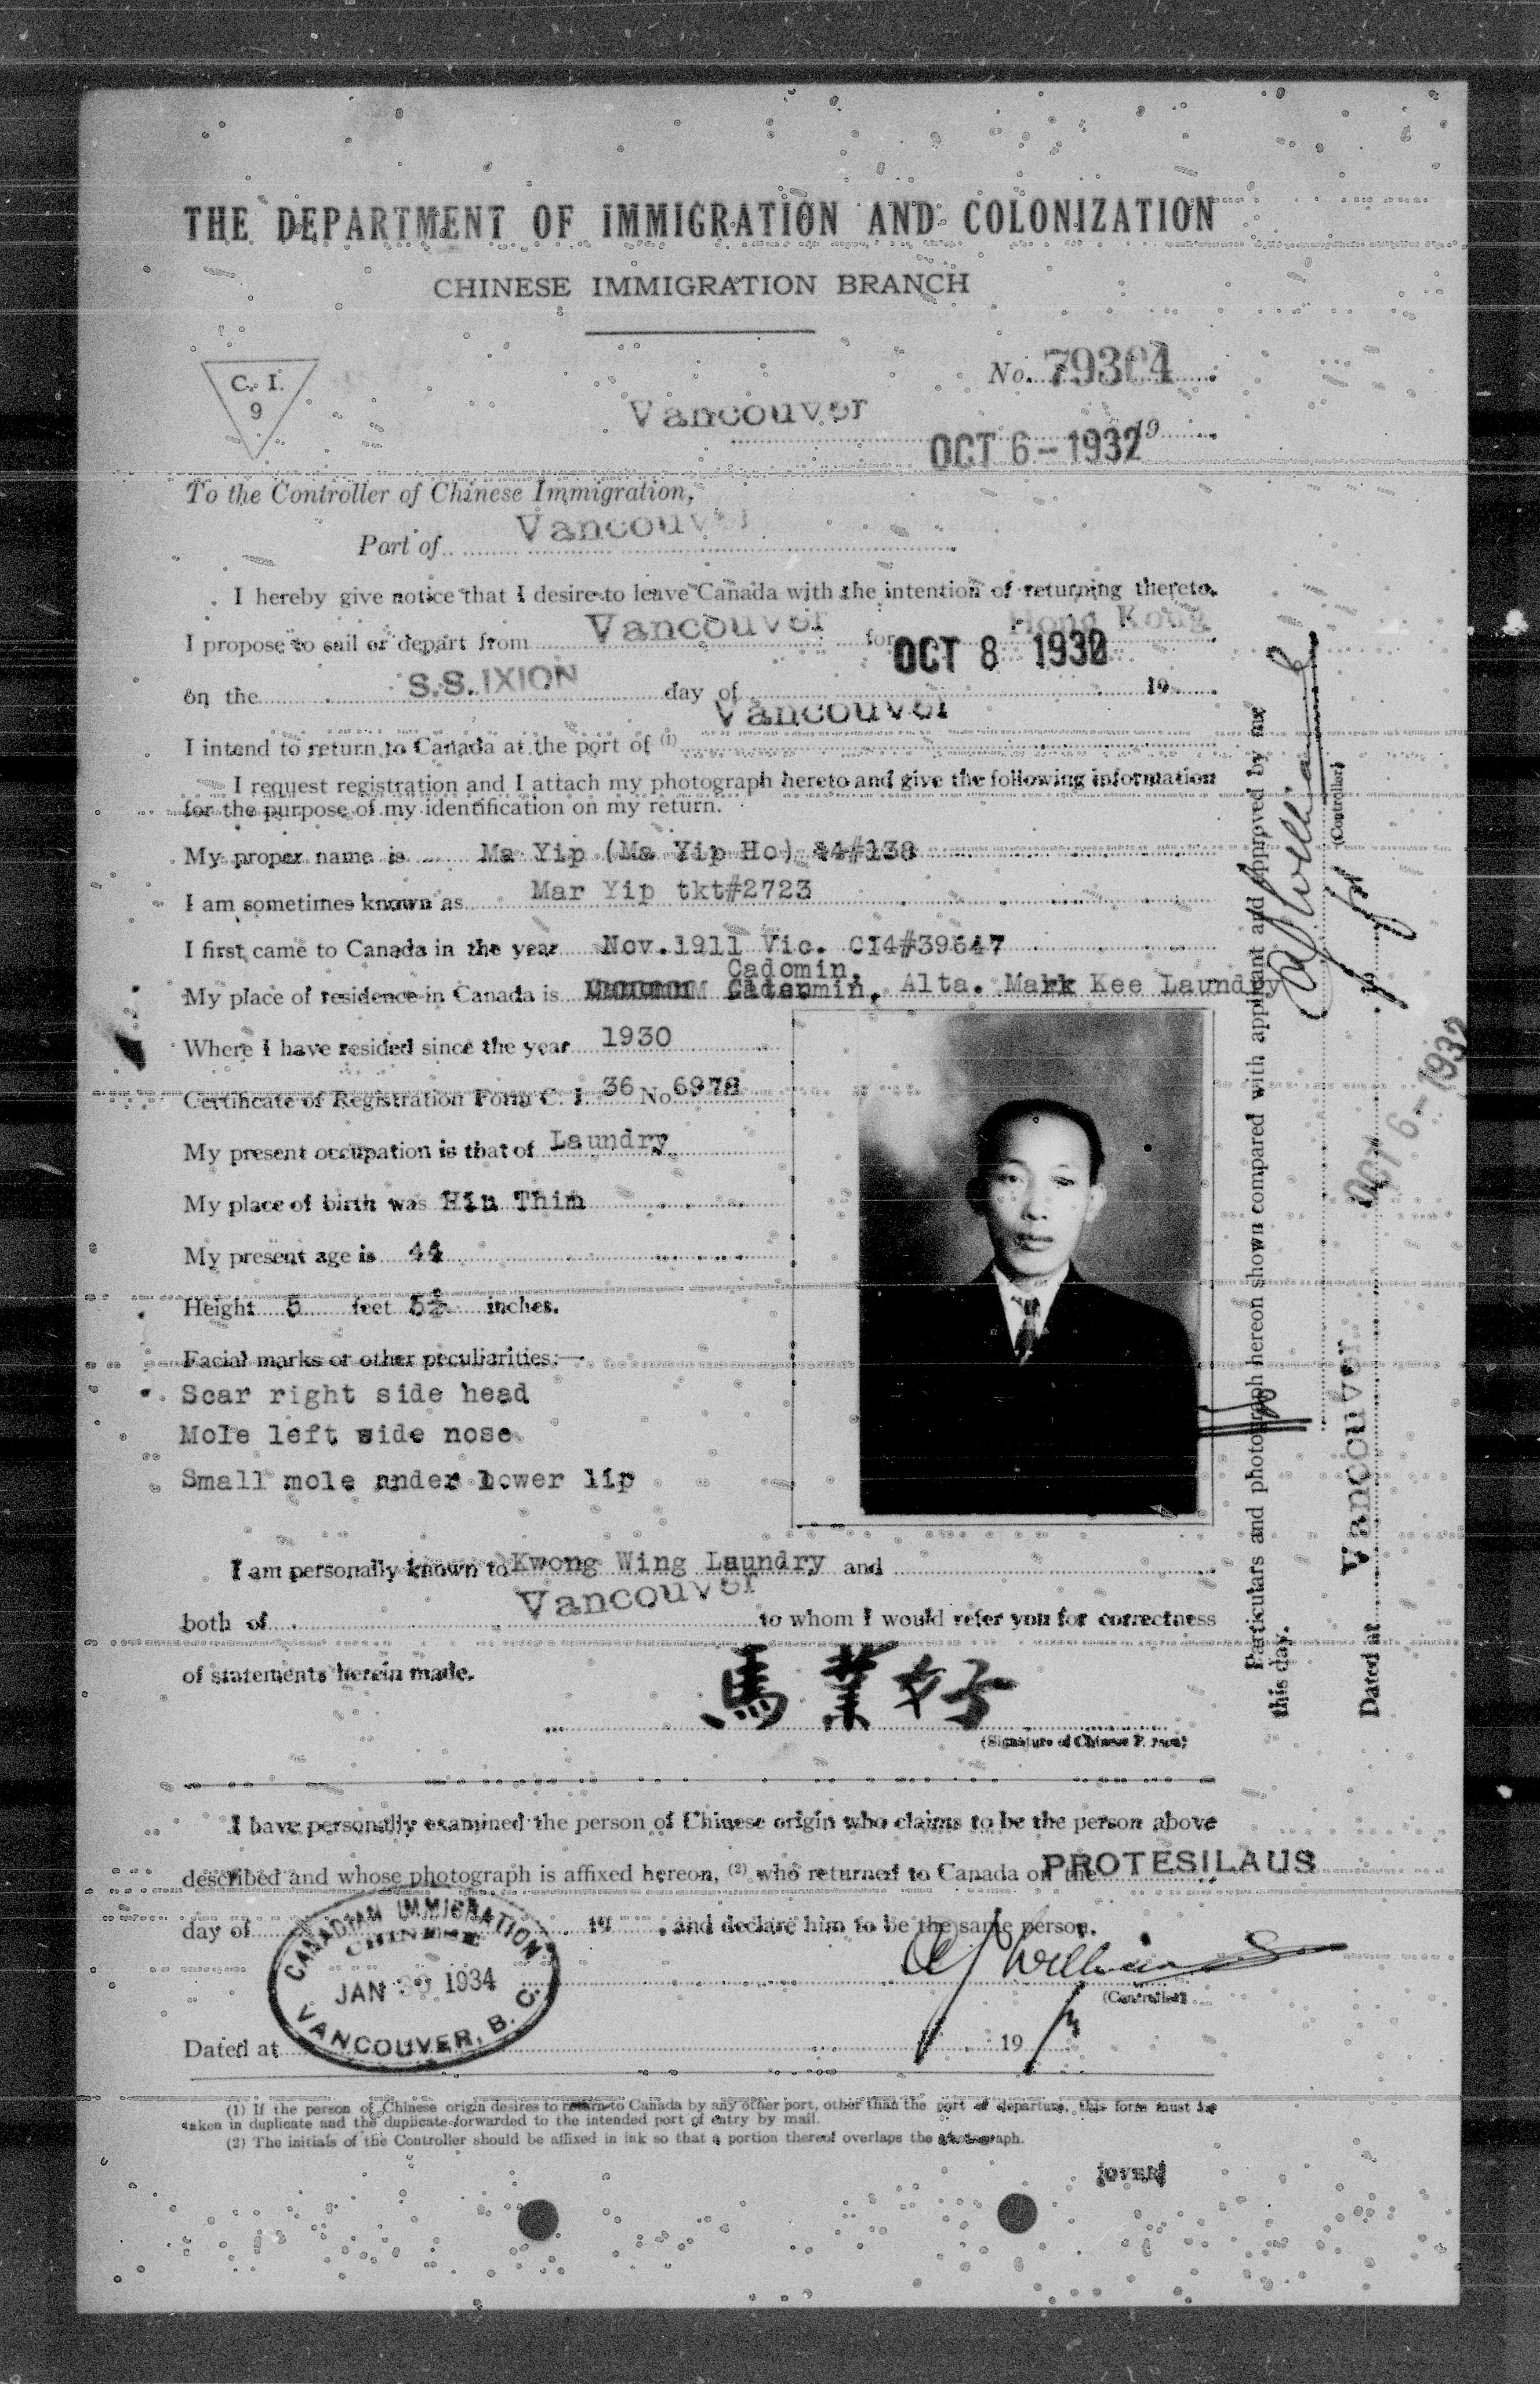 THE DEPARTMENT OF IMMIGRATION AND COLONIZATION
CHINESE IMMIGRATION BRANCH
C. I.
9
No. 79304
Vancouver
OCT 6 - 1932 19
To the Controller of Chinese Immigration,
Port of Vancouver
I hereby give notice that I desire to leave Canada with the intention of returning thereto.
I propose to sail or depart from Vancouver for Hong Kong
on the S.S. IXION day of OCT 8 1932 19
I intend to return to Canada at the port of (1) Vancouver
I request registration and I attach my photograph hereto and give the following information
for the purpose of my identification on my return.
My proper name is Ma Yip (Ma Yip Ho) #138
I am sometimes known as Mar Yip tkt#2723
I first came to Canada in the year Nov. 1911 Vic. CI4#39647
Cadomin,
My place of residence in Canada is Alta. Mark Kee Laundry
Where I have resided since the year 1930
Certificate of Registration Form C. I. 36 No 6978
My present occupation is that of Laundry
My place of birth was Hin Thim
My present age is 44
Height 5 feet 5½ inches.
Facial marks or other peculiarities:—
Scar right side head
Mole left side nose
Small mole under lower lip
I am personally known to Kwong Wing Laundry and
both of Vancouver to whom I would refer you for correctness
of statements herein made.
馬業好
(Signature of Chinese Person)
I have personally examined the person of Chinese origin who claims to be the person above
described and whose photograph is affixed hereon, (2) who returned to Canada on the PROTESILAUS
day of 19 , and declare him to be the same person.
CANADIAN IMMIGRATION
CHINESE
JAN 1934
VANCOUVER, B. C.
(Controller)
Dated at 19
(1) If the person of Chinese origin desires to return to Canada by any other port, other than the port of departure, this form must be
taken in duplicate and the duplicate forwarded to the intended port of entry by mail.
(2) The initials of the Controller should be affixed in ink so that a portion thereof overlaps the photograph.
[OVER]
Particulars and photograph hereon shown compared with applicant and approved by me
this day.
(Controller)
Dated at Vancouver OCT 6 - 1932